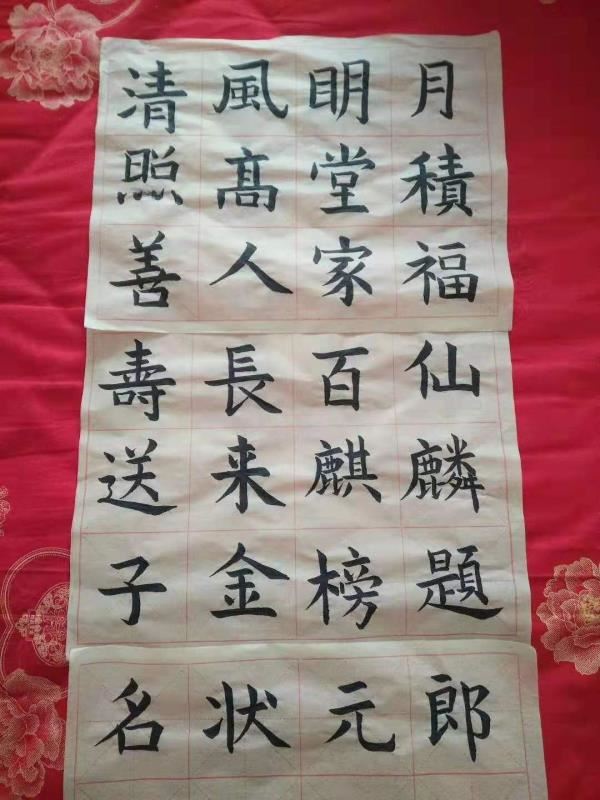 清風明月
照高堂積
善人家福
壽長百仙
送来麒麟
子金榜題
名状元郎